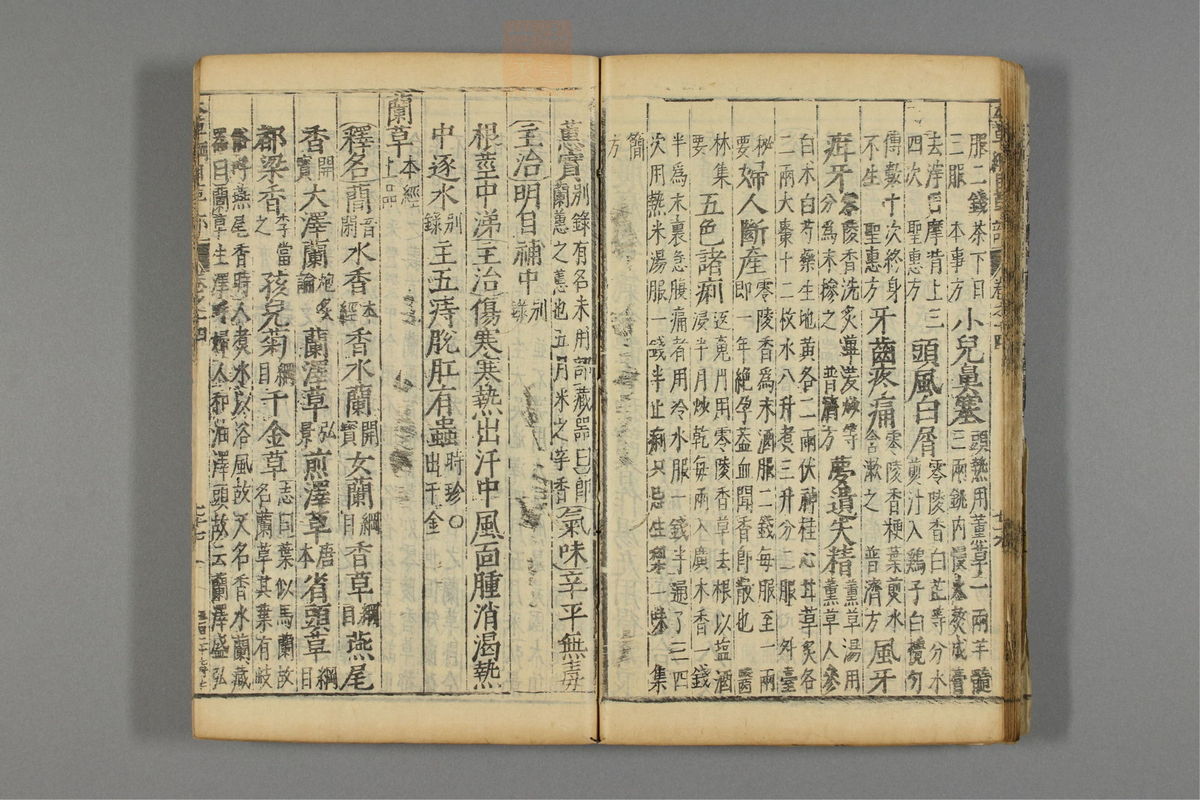 服二錢茶下日三服　本事方　小兒鼻塞　頭熱用薰草一兩羊髓三兩銚內慢火熬成膏
去滓日摩背上三四次　聖惠方　頭風白屑　零陵香白芷等分水煎汁入鷄子白攪勻
傅數十次終身不生　聖惠方　牙齒疼痛　零陵香梗葉煎水含漱之　普濟方　風牙
疳牙　零陵香洗炙蓽茇炒等分為末摻之　普濟方　夢遺失精　薰草湯用薰草人參
白朮白芍藥生地黃各二兩伏神桂心甘草炙各
二兩大棗十二枚水八升煮三升分二服　外臺
秘要　婦人斷産　零陵香爲末酒服二錢每服至一兩即一年絕孕葢血聞香即散也　醫
林集要　五色諸痢　返魂丹用零陵香草去根以鹽酒浸半月炒乾每兩入廣木香一錢
半爲末裏急腹痛者用冷水服一錢半通了三四
次用熱米湯服一錢半止痢只忌生梨一味　集
簡方
蕙實　別錄有名未用部藏器曰即蘭蕙之蕙也五月采之辛香　氣味辛平無毒
主治明目補中　別錄
根莖中涕主治傷寒寒熱出汗中風面腫消渴熱
中逐水　別錄　主五痔脫肛有蟲　時珍○出千金
蘭草　本經上品
釋名蕑　音閑　水香　本經　香水蘭　開寶　女蘭　綱目　香草　綱目　燕尾
香　開寶　大澤蘭　炮炙論　蘭澤草　弘景　煎澤草　唐本　省頭草　綱目
都梁香　李當之　孩兒菊　綱目　千金草　志曰葉似馬蘭故名蘭草其葉有岐
俗呼燕尾香時人煮水以浴風故又名香水蘭藏
器曰蘭草生澤畔婦人和油澤頭故云蘭澤盛弘